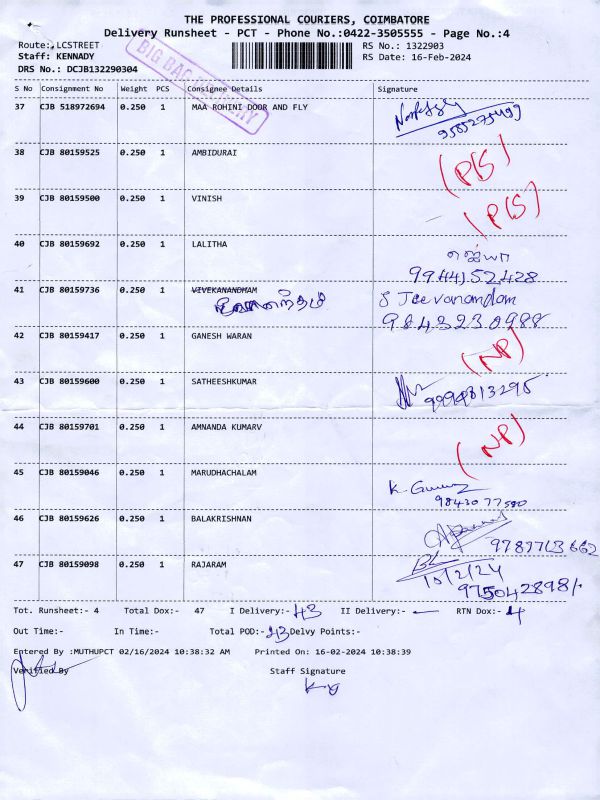 THE PROFESSIONAL COURIERS, COIMBATORE
Delivery Runsheet - PCT - Phone No.:0422-3505555 - Page No.:4
Route: LCSTREET RS No.: 1322903
Staff: KENNADY RS Date: 16-Feb-2024
DRS No.: DCJB132290304
S No Consignment No Weight PCS Consignee Details Signature
37 CJB 518972694 0.250 1 MAA ROHINI DOOR AND FLY
38 CJB 80159525 0.250 1 AMBIDURAI (P/S)
39 CJB 80159500 0.250 1 VINISH (P/S)
40 CJB 80159692 0.250 1 LALITHA ஜெயா
9944152428
41 CJB 80159736 0.250 1 VIVEKANANDHAM S Jeevanandam
9843230988
42 CJB 80159417 0.250 1 GANESH WARAN (NP)
43 CJB 80159600 0.250 1 SATHEESHKUMAR 9994813295
44 CJB 80159701 0.250 1 AMNANDA KUMARV (NP)
45 CJB 80159046 0.250 1 MARUDHACHALAM K.
46 CJB 80159626 0.250 1 BALAKRISHNAN
9789713662
47 CJB 80159098 0.250 1 RAJARAM
10/2/24
Tot. Runsheet:- 4 Total Dox:- 47 I Delivery:- 43 II Delivery:- RTN Dox:- 4
Out Time:- In Time:- Total POD:- 43 Delvy Points:-
Entered By :MUTHUPCT 02/16/2024 10:38:32 AM Printed On: 16-02-2024 10:38:39
Verified By Staff Signature